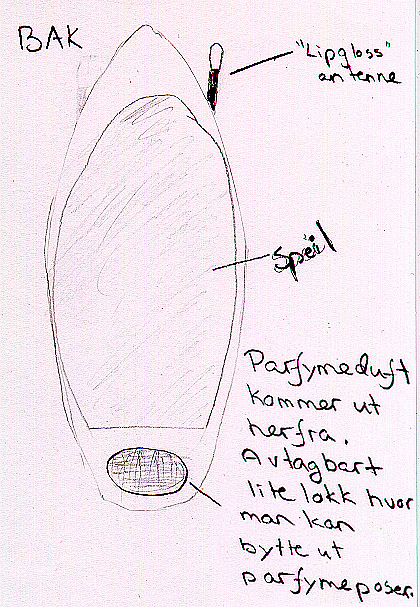 BAK
"Lipgloss"
antenne
Speil
Parfymeduft
kommer ut
herfra.
Avtagbart
lite lokk hvor
man kan
bytte ut
parfymeposer.